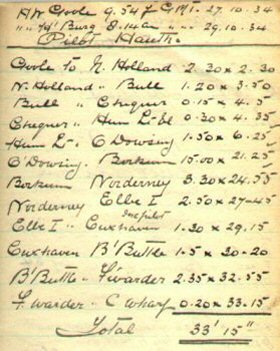 HW Goole 9.54 27.10.34
" " H' Burg 8.14 29.10.34
Pilot Hauth.
Goole to N. Holland 2.30 x 2.30
N. Holland " Bull 1.20 x 3.50
Bull " Chequer 0.15 x 4.5
Chequer " Hum L-El 0.30 x 4.35
Hum L- " O Dowsing 1.50 x 6.25
O Dowsing. Borkum 15.00 x 21.25
Borkum Norderney 3.30 x 24.55
Norderney Elbe I 2.50 x 27-45
Inc pilot
Elbe I " Cuxhaven 1.30 x 29.15
Cuxhaven B'Buttle 1.5 x 30-20
B'Buttle " F'warder 2.35 x 32.55
F. warder - C Wharf 0.20 x 33.15
Total 33' 15"